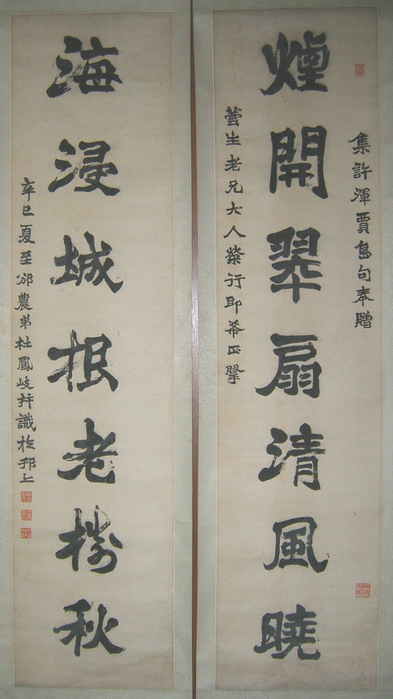 集許渾賈島句奉贈
煙開翠扇清風曉
蕓生老兄大人榮行即希正擘
海浸城根老樹秋
辛巳夏至邠農弟杜鳳岐并識於邗上